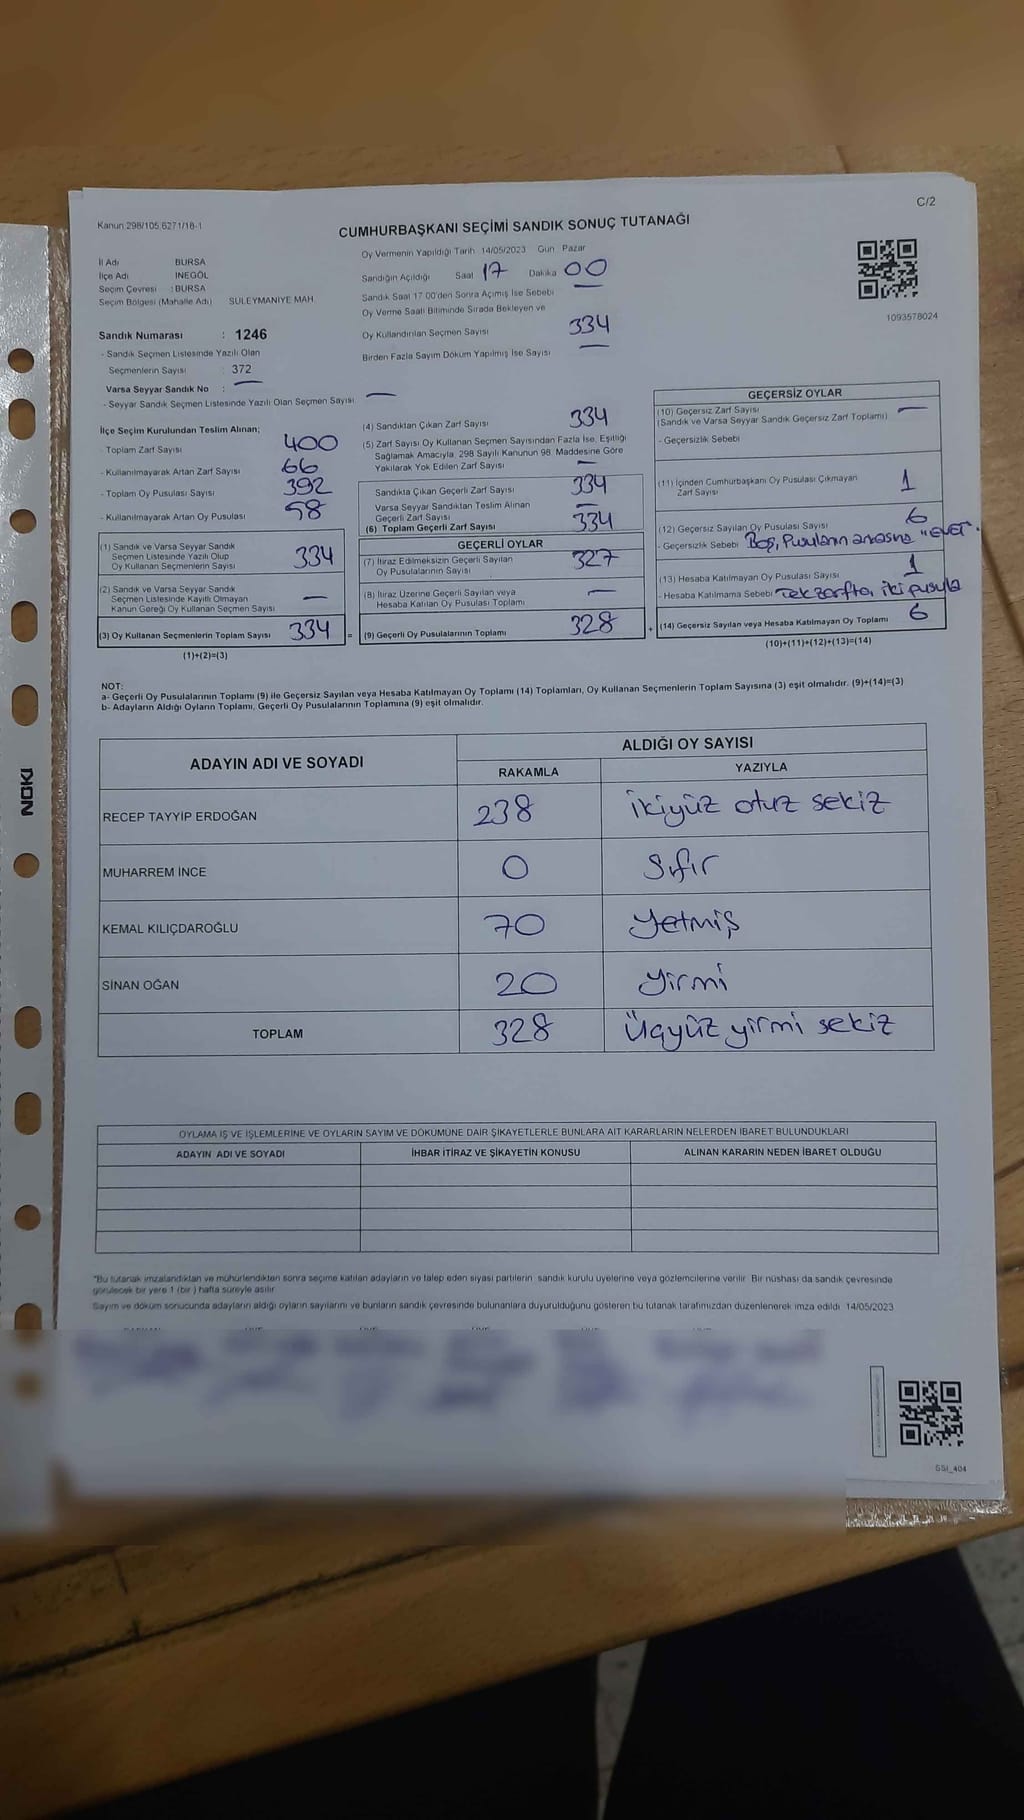 C/2
Kanun 298/105,6271/18-1
CUMHURBAŞKANI SEÇİMİ SANDIK SONUÇ TUTANAĞI
İl Adı BURSA
İlçe Adı İNEGÖL
Seçim Çevresi : BURSA
Seçim Bölgesi (Mahalle Adı) SÜLEYMANİYE MAH.
Sandık Numarası : 1246
- Sandık Seçmen Listesinde Yazılı Olan
Seçmenlerin Sayısı : 372
Varsa Seyyar Sandık No : —
- Seyyar Sandık Seçmen Listesinde Yazılı Olan Seçmen Sayısı —
Oy Vermenin Yapıldığı Tarih 14/05/2023 Gün Pazar
Sandığın Açıldığı Saat 17 Dakika 00
Sandık Saat 17.00'den Sonra Açımış İse Sebebi —
Oy Verme Saati Bitiminde Sırada Bekleyen ve
Oy Kullandırılan Seçmen Sayısı 334
Birden Fazla Sayım Döküm Yapılmış İse Sayısı —
1093578024
İlçe Seçim Kurulundan Teslim Alınan;
- Toplam Zarf Sayısı 400
- Kullanılmayarak Artan Zarf Sayısı 66
- Toplam Oy Pusulası Sayısı 392
- Kullanılmayarak Artan Oy Pusulası 58
(1) Sandık ve Varsa Seyyar Sandık
Seçmen Listesinde Yazılı Olup
Oy Kullanan Seçmenlerin Sayısı 334
(2) Sandık ve Varsa Seyyar Sandık
Seçmen Listesinde Kayıtlı Olmayan
Kanun Gereği Oy Kullanan Seçmen Sayısı —
(3) Oy Kullanan Seçmenlerin Toplam Sayısı 334 =
(1)+(2)=(3)
(4) Sandıktan Çıkan Zarf Sayısı 334
(5) Zarf Sayısı Oy Kullanan Seçmen Sayısından Fazla İse, Eşitliği
Sağlamak Amacıyla, 298 Sayılı Kanunun 98. Maddesine Göre
Yakılarak Yok Edilen Zarf Sayısı —
Sandıkta Çıkan Geçerli Zarf Sayısı 334
Varsa Seyyar Sandıktan Teslim Alınan
Geçerli Zarf Sayısı —
(6) Toplam Geçerli Zarf Sayısı 334
GEÇERLİ OYLAR
(7) İtiraz Edilmeksizin Geçerli Sayılan
Oy Pusulalarının Sayısı 327
(8) İtiraz Üzerine Geçerli Sayılan veya
Hesaba Katılan Oy Pusulası Toplamı —
(9) Geçerli Oy Pusulalarının Toplamı 328 +
GEÇERSİZ OYLAR
(10) Geçersiz Zarf Sayısı —
(Sandık ve Varsa Seyyar Sandık Geçersiz Zarf Toplamı)
- Geçersizlik Sebebi
(11) İçinden Cumhurbaşkanı Oy Pusulası Çıkmayan
Zarf Sayısı 1
(12) Geçersiz Sayılan Oy Pusulası Sayısı 6
- Geçersizlik Sebebi Boş, Pusulanın arkasına "EVET".
(13) Hesaba Katılmayan Oy Pusulası Sayısı 1
- Hesaba Katılmama Sebebi Tek zarfta iki pusula
(14) Geçersiz Sayılan veya Hesaba Katılmayan Oy Toplamı 6
(10)+(11)+(12)+(13)=(14)
NOT:
a- Geçerli Oy Pusulalarının Toplamı (9) ile Geçersiz Sayılan veya Hesaba Katılmayan Oy Toplamı (14) Toplamları, Oy Kullanan Seçmenlerin Toplam Sayısına (3) eşit olmalıdır. (9)+(14)=(3)
b- Adayların Aldığı Oyların Toplamı, Geçerli Oy Pusulalarının Toplamına (9) eşit olmalıdır.
ADAYIN ADI VE SOYADI
ALDIĞI OY SAYISI
RAKAMLA YAZIYLA
RECEP TAYYİP ERDOĞAN 238 ikiyüz otuz sekiz
MUHARREM İNCE 0 Sıfır
KEMAL KILIÇDAROĞLU 70 Yetmiş
SİNAN OĞAN 20 Yirmi
TOPLAM 328 Üçyüz yirmi sekiz
OYLAMA İŞ VE İŞLEMLERİNE VE OYLARIN SAYIM VE DÖKÜMÜNE DAİR ŞİKAYETLERLE BUNLARA AİT KARARLARIN NELERDEN İBARET BULUNDUKLARI
ADAYIN ADI VE SOYADI İHBAR İTİRAZ VE ŞİKAYETİN KONUSU ALINAN KARARIN NEDEN İBARET OLDUĞU
*Bu tutanak imzalandıktan ve mühürlendikten sonra seçime katılan adayların ve talep eden siyasi partilerin sandık kurulu üyelerine veya gözlemcilerine verilir. Bir nüshası da sandık çevresinde
görülecek bir yere 1 (bir) hafta süreyle asılır.
Sayım ve döküm sonucunda adayların aldığı oyların sayılarını ve bunların sandık çevresinde bulunanlara duyurulduğunu gösteren bu tutanak tarafımızdan düzenlenerek imza edildi. 14/05/2023
SSİ_404
NOKI